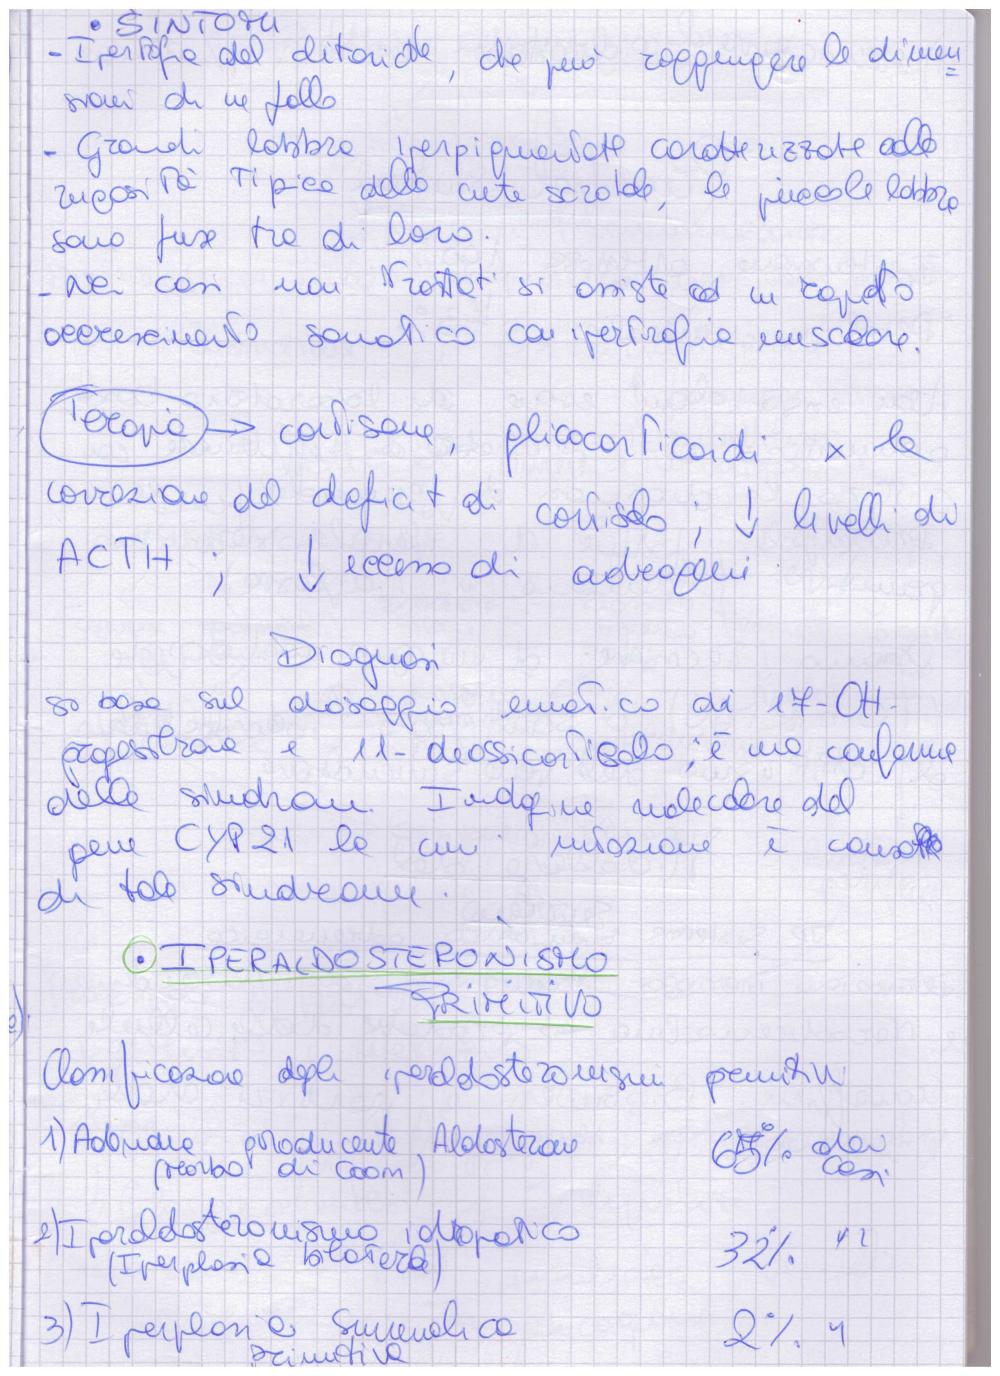 • SINTOMI
- Ipertrofia del clitoride, che può raggiungere le dimen=
sioni di un fallo
- Grandi labbra iperpigmentate caratterizzate dalla
rugosità tipica della cute scrotale, le piccole labbra
sono fuse tra di loro.
- Nei casi non trattati si assiste ad un rapido
accrescimento somatico con ipertrofia muscolare.
Terapia → cortisone, glicocorticoidi x la
correzione del deficit di cortisolo; ↓ livelli di
ACTH; ↓ eccesso di androgeni
Diagnosi
si basa sul dosaggio ematico di 17-OH-
progesterone e 11-deossicortisolo; è una conferma
della sindrome. Indagine molecolare del
gene CYP21 la cui mutazione è causa
di tale sindrome.
• IPERALDOSTERONISMO
PRIMITIVO
Classificazione degli iperaldosteronismi primitivi
1) Adenoma producente Aldosterone 65% dei
(Morbo di Conn) casi
2) Iperaldosteronismo idiopatico 32% "
(Iperplasia bilaterale)
3) Iperplasia Surrenalica 2% "
primitiva